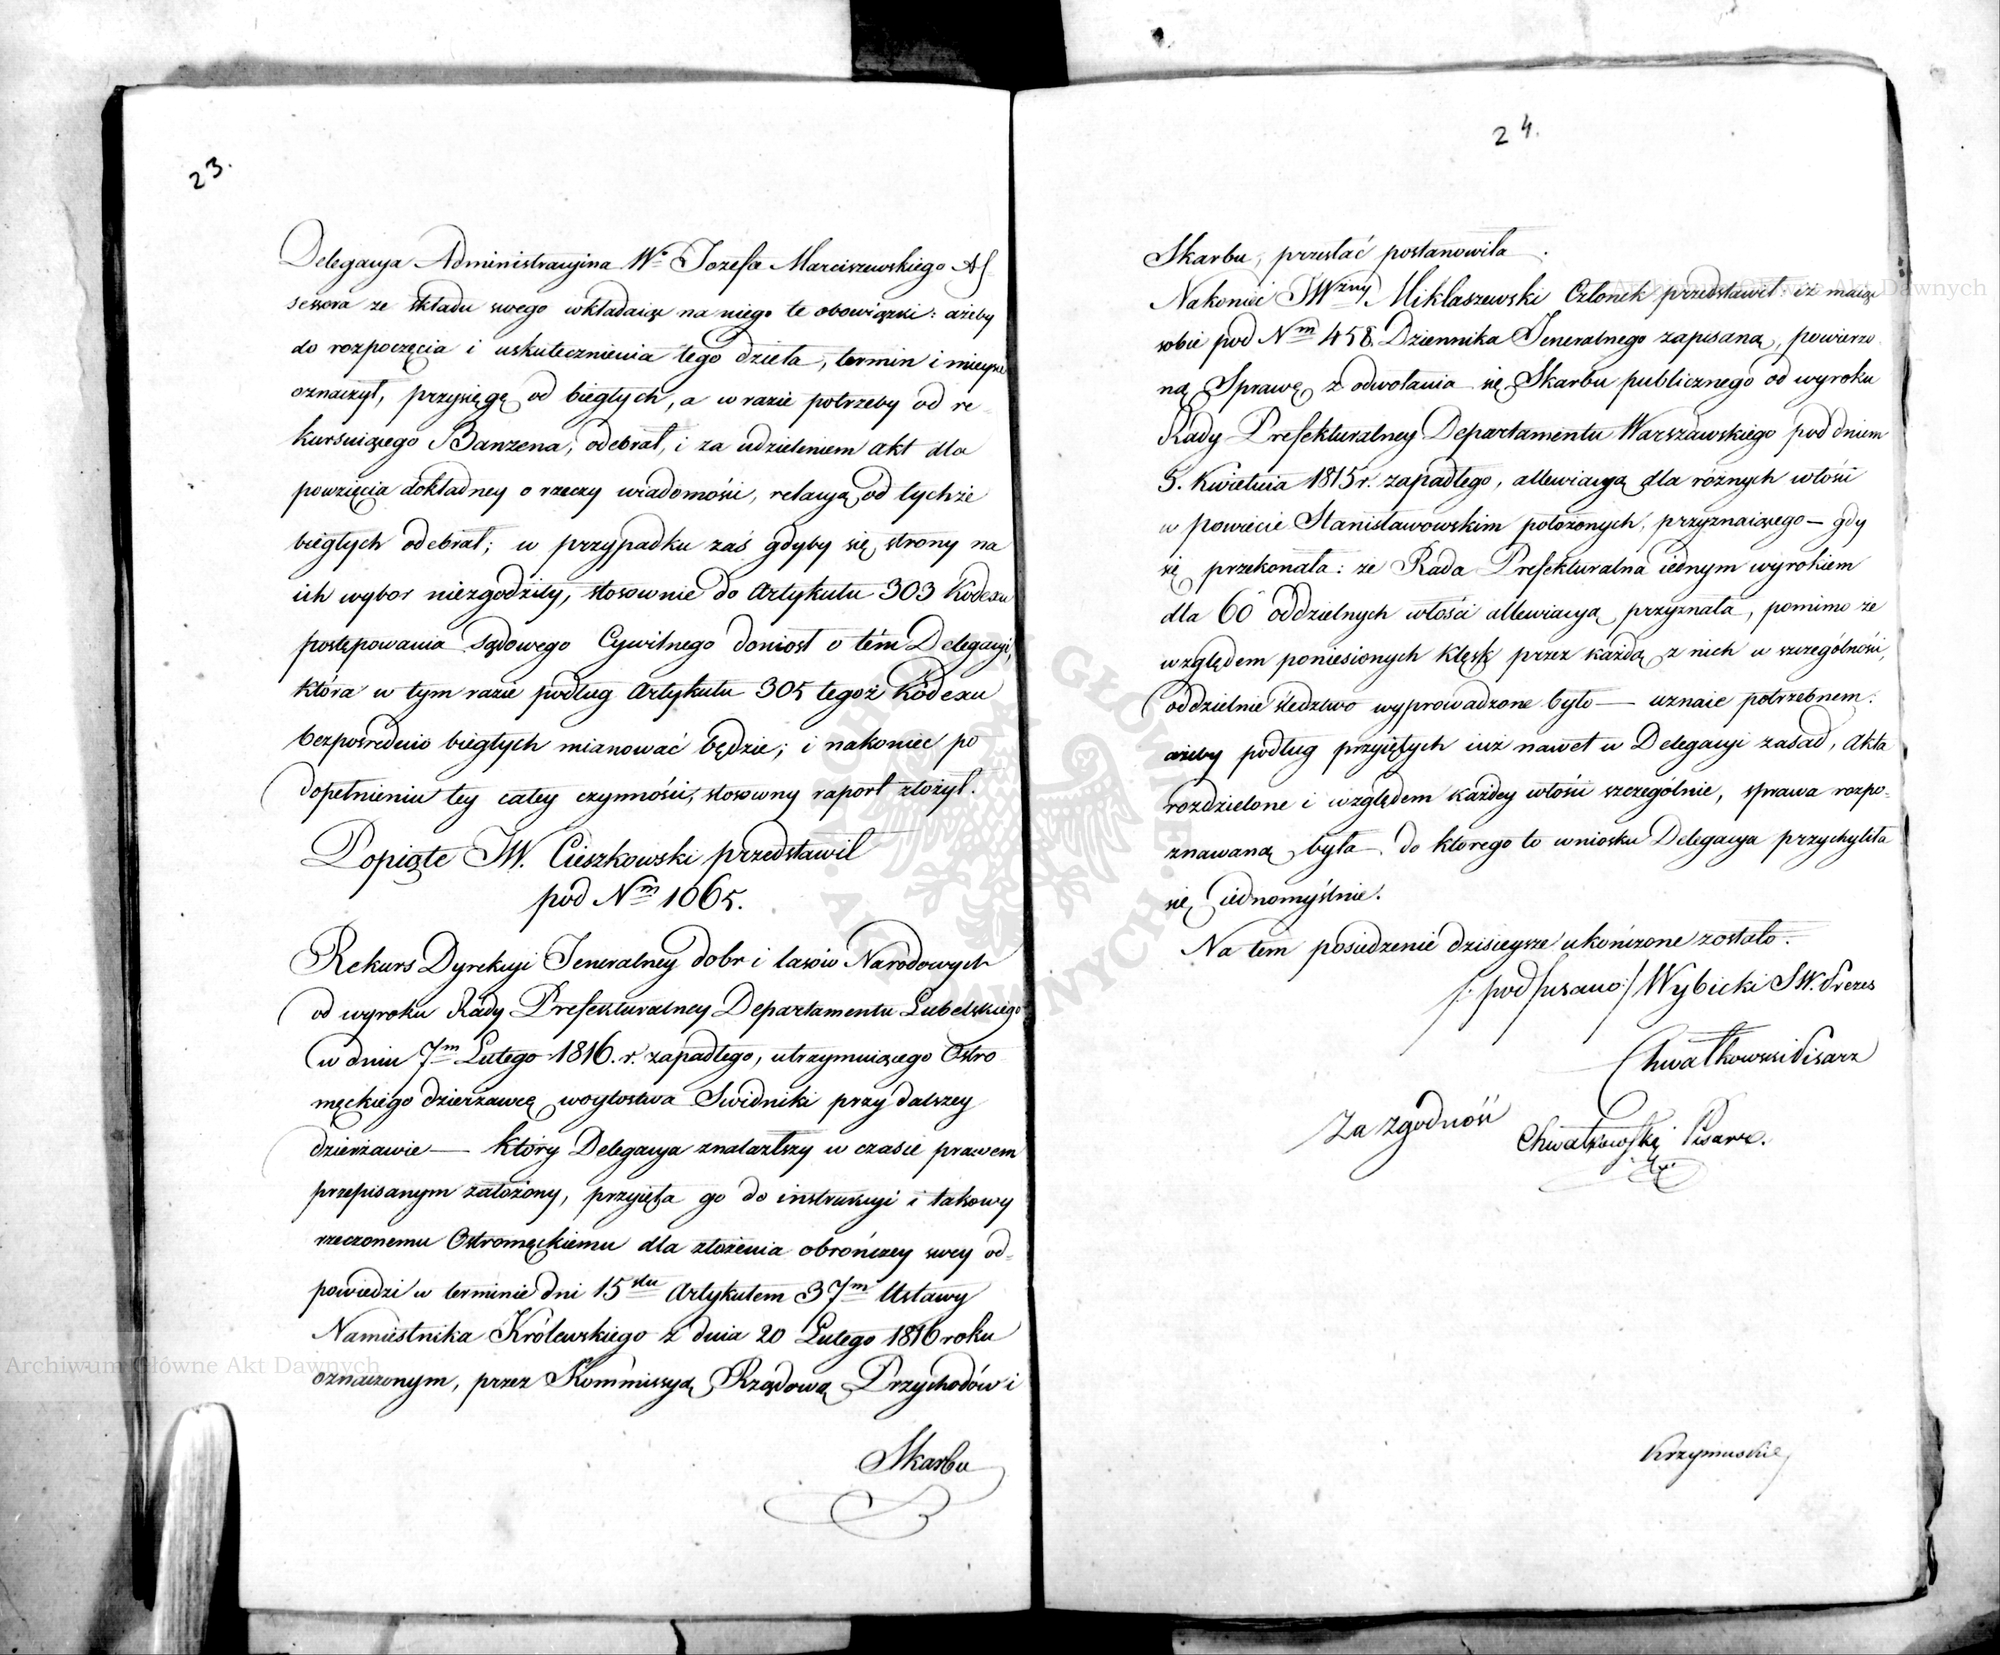 23.
Delegacya Administracyina Wo Jozefa Marciszewskiego As
sessora ze składu swego wkładaiąc na niego te obowiązki: ażeby
do rozpoczęcia i uskutecznienia tego dzieła, termin i mieysce
oznaczył, przysięgę od biegłych, a w razie potrzeby od re-
kursuiącego Banzena, odebrał, i za udzieleniem akt dla
powzięcia dokładney o rzeczy wiadomości, relacyą od tychże
biegłych odebrał; w przypadku zaś gdyby się strony na
ich wybor niezgodziły, stosownie do Artykułu 303 Kodexu
postępowania Sądowego Cywilnego doniosł o tém Delegacyi,
która w tym razie podług Artykułu 305 tegoż Kodexu
bezpośrednio biegłych mianować będzie; i nakoniec po
dopełnieniu tey całey czynności, stosowny raport złożył.
Popiąte JW. Cieszkowski przedstawił
pod Nm 1065.
Rekurs Dyrekcyi Jeneralney dobr i lasów Narodowych
od wyroku Rady Prefekturalney Departamentu Lubelskiego
w dniu 7m Lutego 1816. r. zapadłego, utrzymuiącego Ostro
męckiego dzierżawcę woytostwa Swidniki przy dalszey
dzierżawie — który Delegacya znalazłszy w czasie prawem
przepisanym założony, przyięła go do instrukcyi i takowy
rzeczonemu Ostromęckiemu dla złożenia obrończey swey od-
powiedzi w terminie dni 15stu Artykułem 37m Ustawy
Namiestnika Królewskiego z dnia 20 Lutego 1816 roku
oznaczonym, przez Kommissyą Rządową Przychodów i
Skarbu
24.
Skarbu, przesłać postanowiła.
Nakoniec JWzny Miklaszewski Członek przedstawił iż maiąc
sobie pod Nm 458 Dziennika Jeneralnego zapisaną, powierzo
ną Sprawę z odwołania się Skarbu publicznego od wyroku
Rady Prefekturalney Departamentu Warszawskiego pod dniem
5. Kwietnia 1815 r. zapadłego, allewiacyą dla różnych włości
w powiecie Stanisławowskim położonych, przyznaiącego — gdy
się przekonała: że Rada Prefekturalna iednym wyrokiem
dla 60 oddzielnych włości allewiacyą przyznała, pomimo że
względem poniesionych klęsk przez każdą z nich w szczególności,
oddzielnie śledztwo wyprowadzone było — uznaie potrzebnem:
ażeby podług przyiętych iuż nawet w Delegacyi zasad, Akta
rozdzielone i względem każdey włości szczególnie, sprawa rozpo-
znawaną była. do ktorego to wniosku Delegacya przychyliła
się iednomyślnie.
Na tem posiedzenie dzisieysze ukończone zostało.
/: podpisano:/ Wybicki SW. Prezes
Chwałkowski Pisarz
Za zgodność
Chwałkowski Pisarz.
Krzymuski
Archiwum Główne Akt Dawnych
Archiwum Główne Akt Dawnych